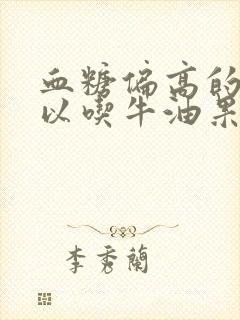 血糖偏高的
以喫牛油果
李秀蘭